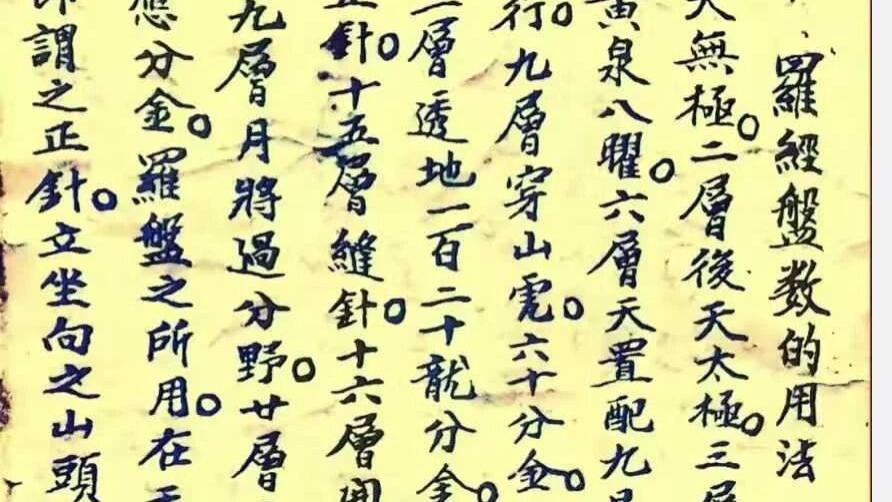 羅經盤数的用法
天無極。二層後天太極。三層
黄泉八曜。六層天置配九星
行。九層穿山虎六十分金。
二層透地一百二十龍分金。
正針。十五層縫針。十六層
九層月將過分野。廿層
應分金。羅盤之所用。在
即謂之正針。立坐向之山頭